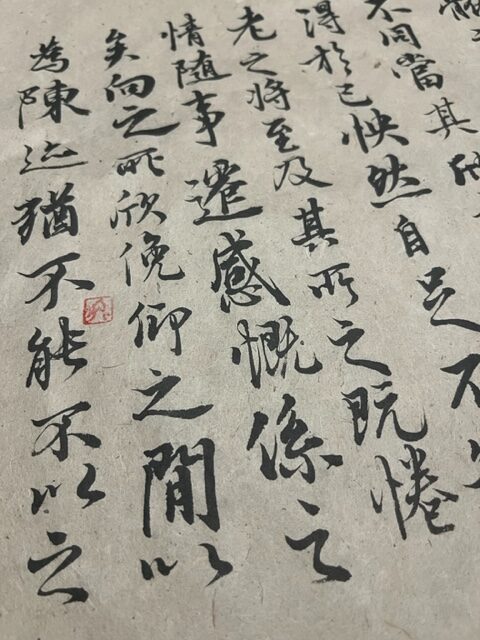 不同當其欣
得於己怏然自足不
老之將至及其所之既惓
情隨事遷感慨係之
矣向之所欣俛仰之閒以
為陳迹猶不能不以之